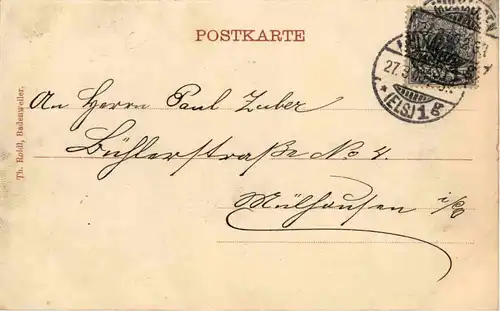 POSTKARTE
27.3
(ELS) 1 g
An Herrn Paul Zuber
Bühlerstraße No 4.
Mülhausen i/E
Th. Roldl, Badenweiler.